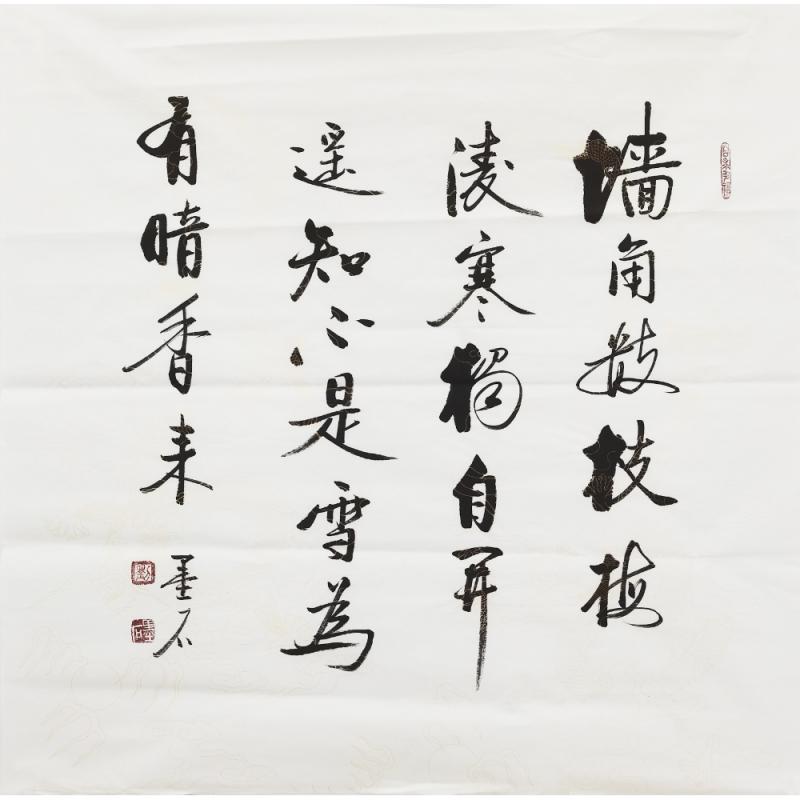 墙角数枝梅
淩寒獨自開
遥知不是雪為
有暗香来
墨石